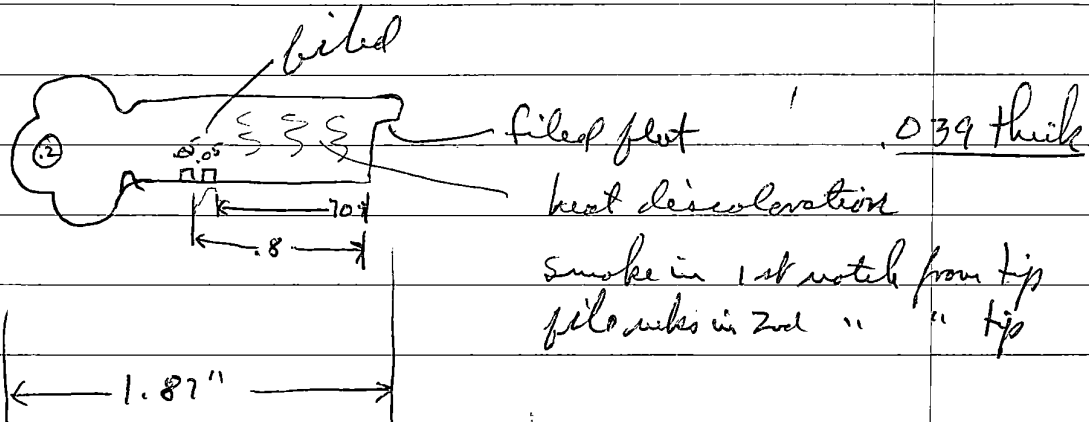 filed
.2
.05 .05
filed flat
.039 thick
heat discoloration
.70
.8
smoke in 1st notch from tip
file mks in 2nd " " tip
1.87"